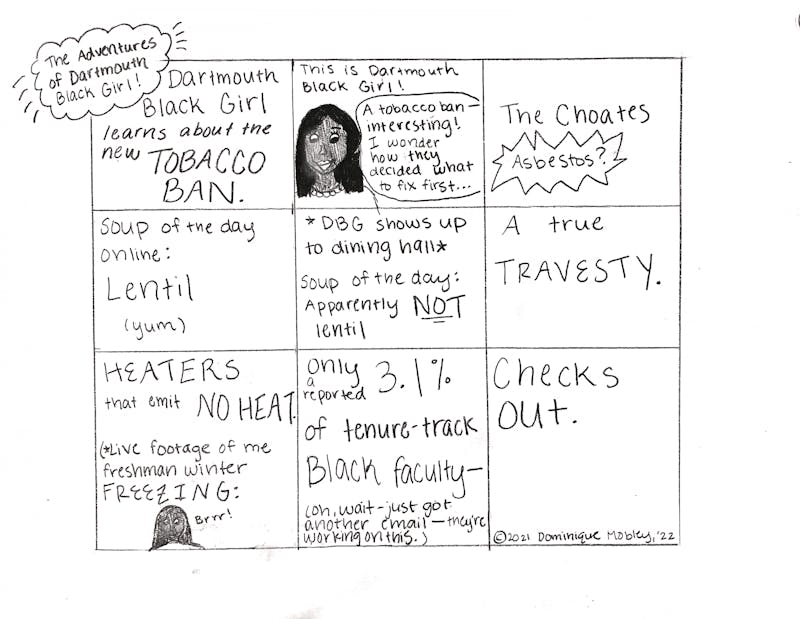 The Adventures
of Dartmouth
Black Girl!
Dartmouth
Black Girl
learns about the
new TOBACCO
BAN.
This is Dartmouth
Black Girl!
A tobacco ban—
interesting!
I wonder
how they
decided what
to fix first...
The Choates
Asbestos?
Soup of the day
online:
Lentil
(yum)
*DBG shows up
to dining hall*
Soup of the day:
Apparently NOT
lentil
A true
TRAVESTY.
HEATERS
that emit NO HEAT.
(*Live footage of me
freshman winter
FREEZING:
Brrr!
Only
a
reported 3.1%
of tenure-track
Black faculty—
(oh, wait—just got
another email—they're
working on this.)
Checks
out.
©2021 Dominique Mobley, '22